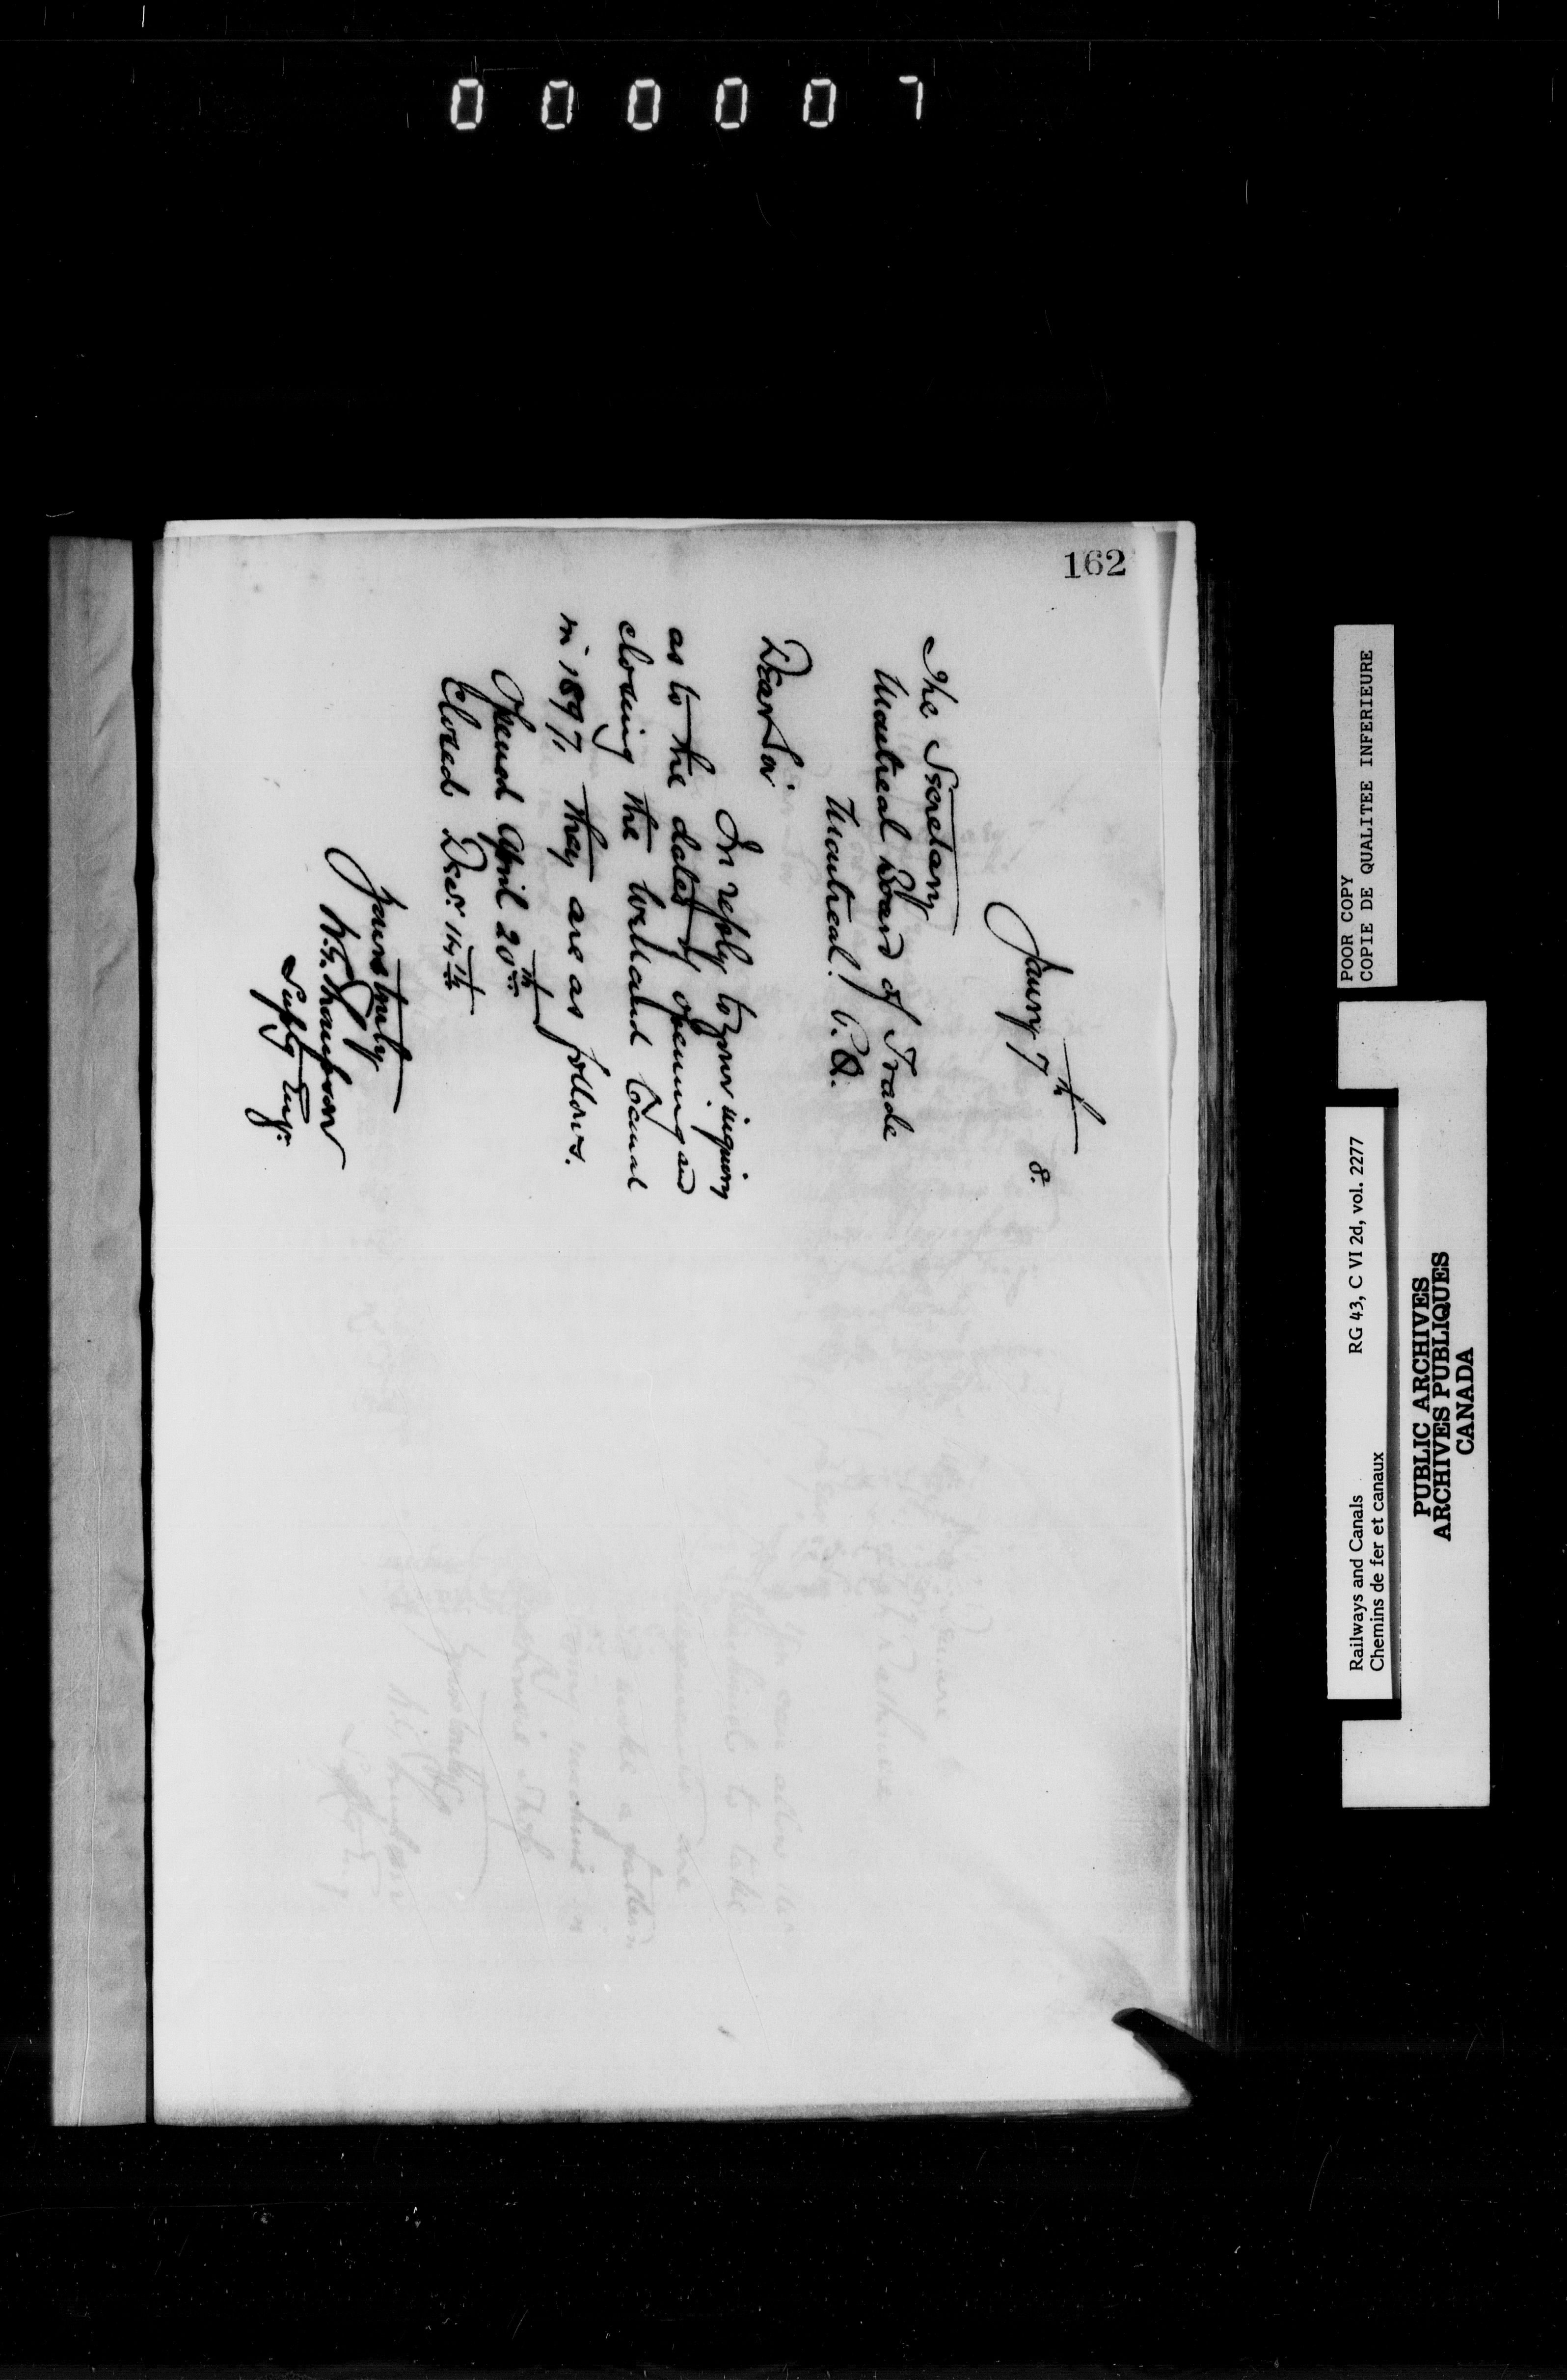 000007
162
Jany 7th 8.
The Secretary
Montreal Board of Trade
Montreal. P.Q.
Dear Sir
In reply to your inquiry
as to the dates of opening and
closing the Welland Canal
in 1897, they are as follows.
Opened April 20th
Closed Decr. 14th
Yours truly
W.G. Thompson
Suptg Engr.
POOR COPY
COPIE DE QUALITEE INFERIEURE
Railways and Canals RG 43, C VI 2d, vol. 2277
Chemins de fer et canaux
PUBLIC ARCHIVES
ARCHIVES PUBLIQUES
CANADA